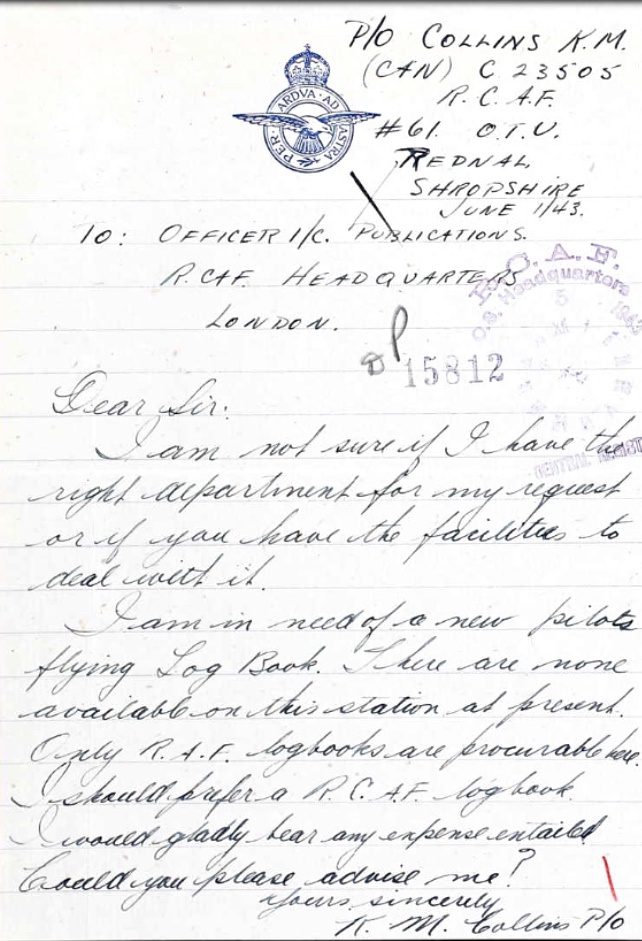 P/O COLLINS K.M.
(CAN) C 23505
R.C.A.F.
PER · ARDVA · AD ASTRA
#61. O.T.U.
REDNAL
SHROPSHIRE
JUNE 1/43.
TO: OFFICER I/C. PUBLICATIONS.
R.CAF. HEADQUARTERS
LONDON.
R.C.A.F.
O.S. Headquarters
5
1943
15812
CENTRAL
Dear Sir:
I am not sure if I have the
right department for my request
or if you have the facilities to
deal with it.
I am in need of a new pilots
flying Log Book. There are none
available on this station at present.
Only R.A.F. logbooks are procurable here.
I should prefer a R.C.A.F. logbook.
I would gladly bear any expense entailed
Could you please advise me?
Yours sincerely
K. M. Collins P/O